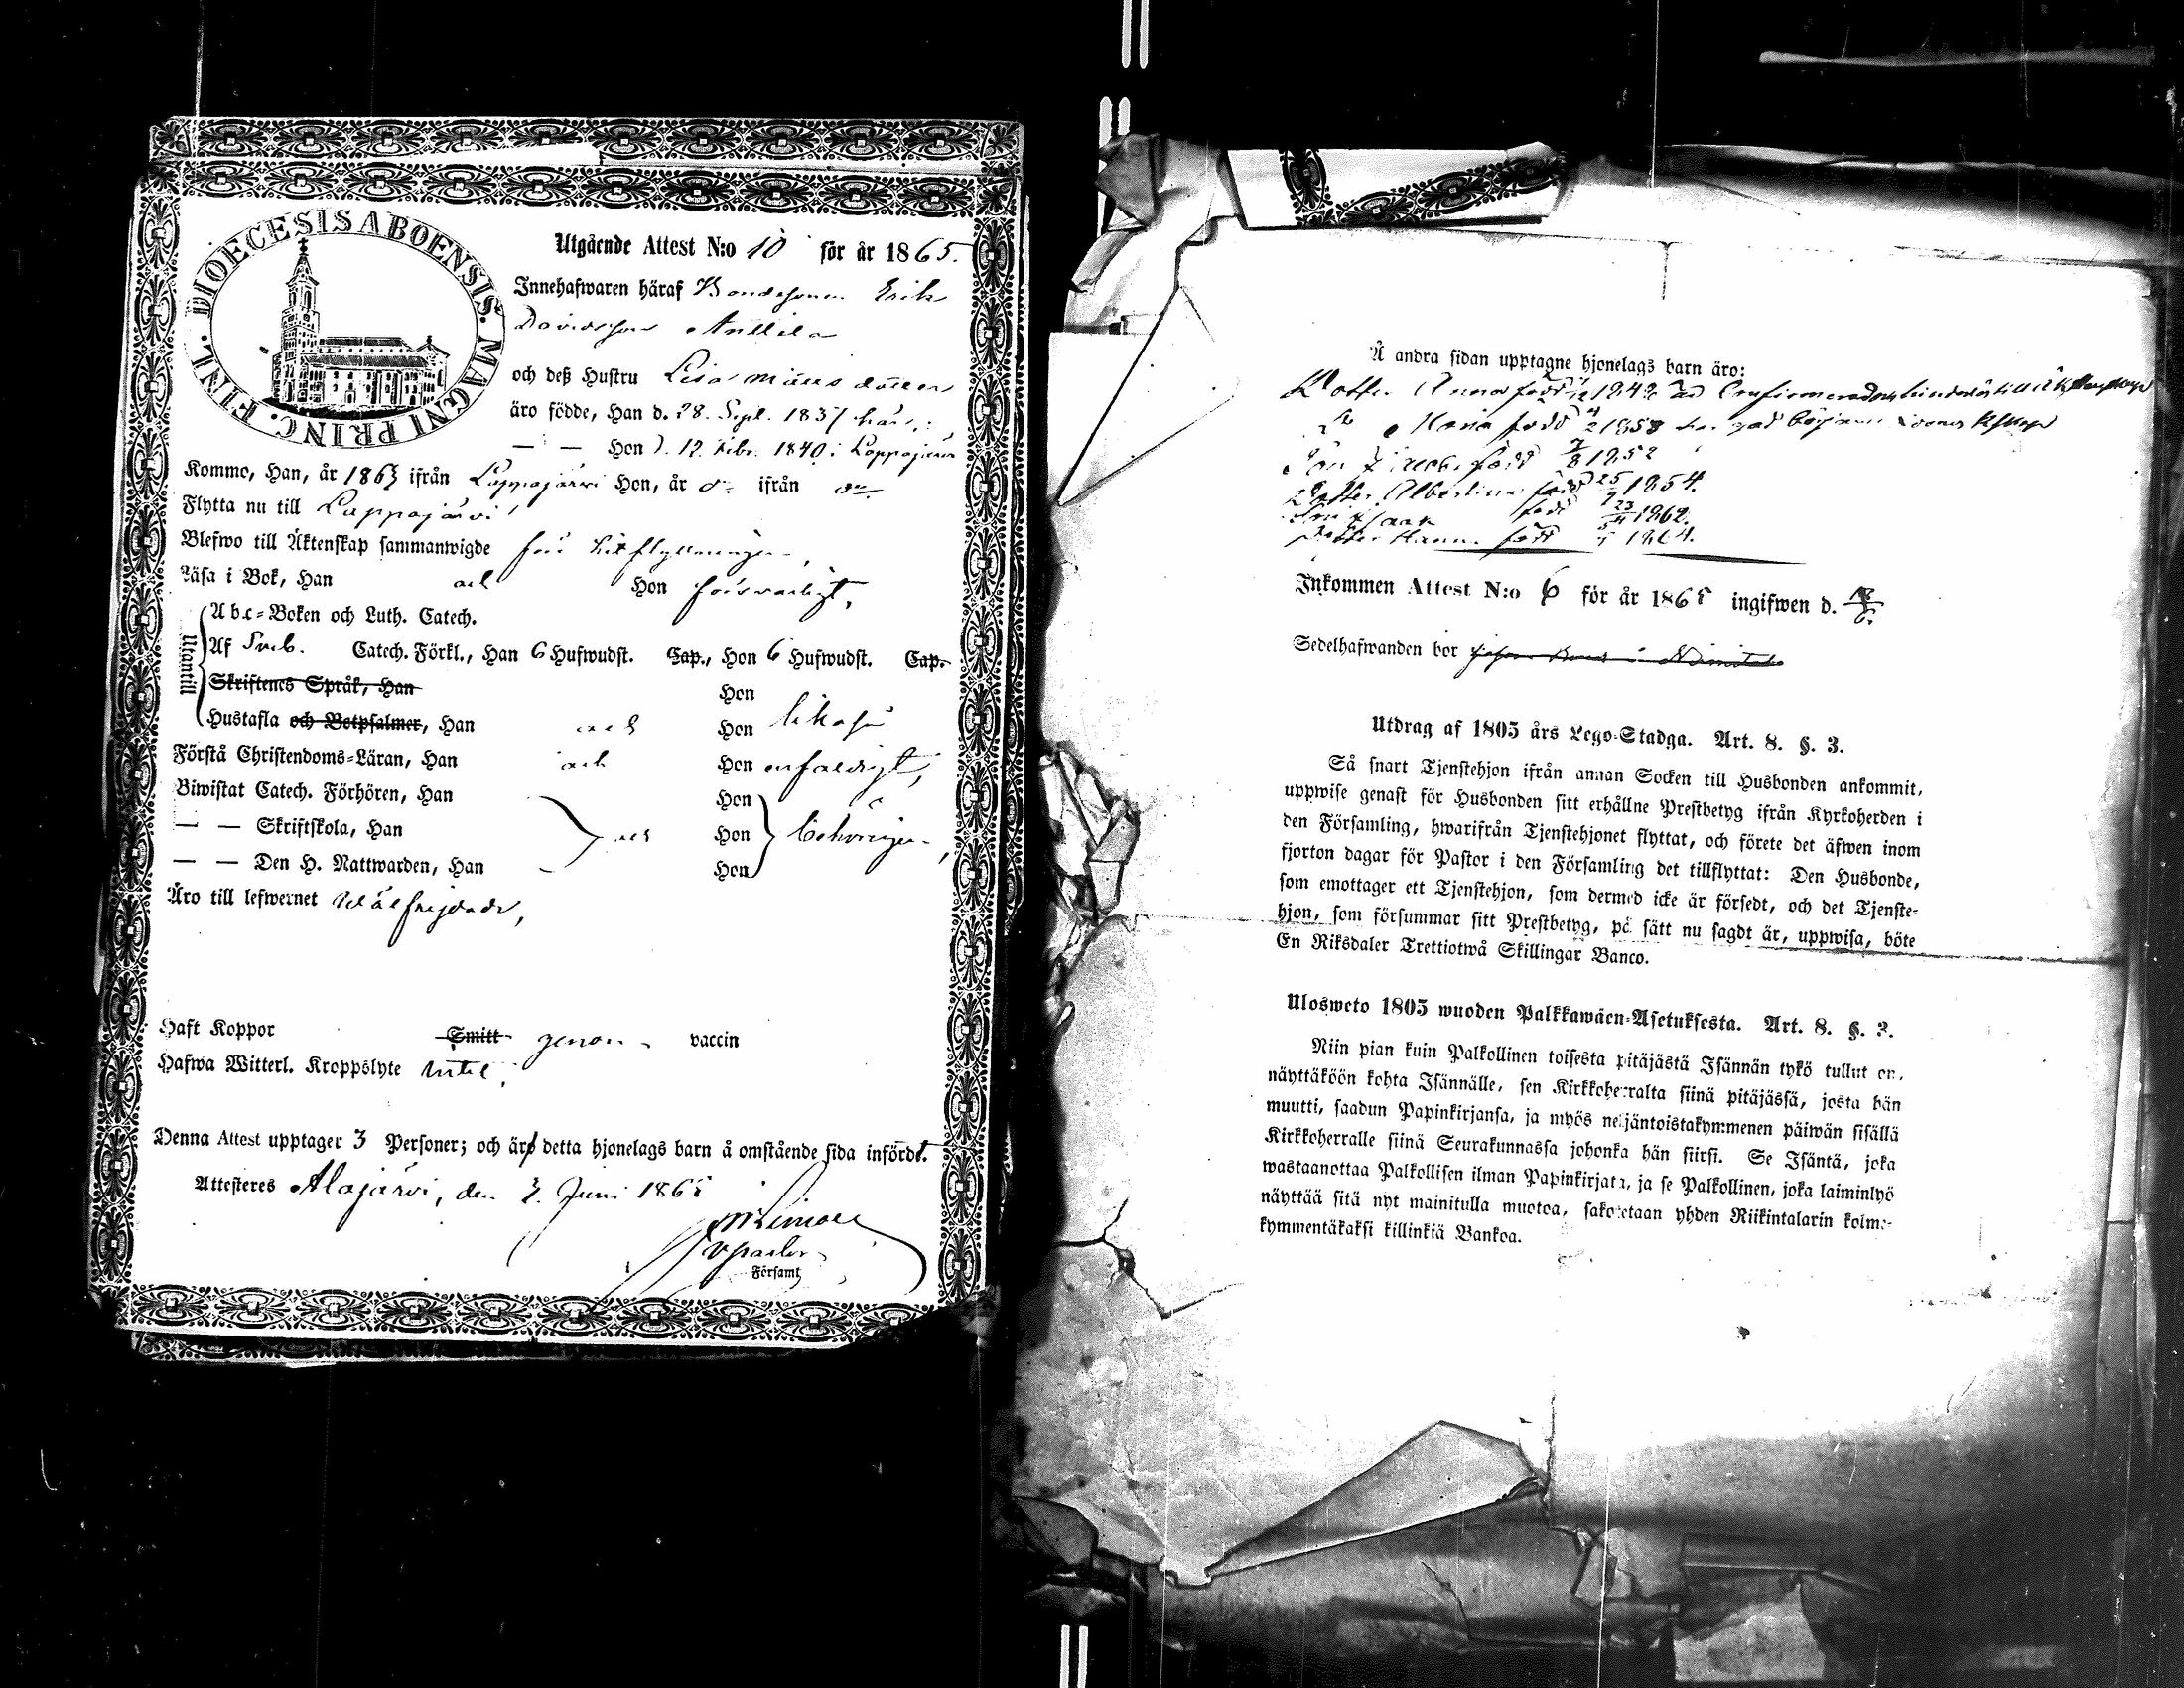 DIOECESIS ABOENSIS. MAGNI PRINC. FINL.
Utgående Attest N:o 10 för år 1865.
Innehafwaren häraf Bondesonen Erik
Davidsson Anttila
och deß Hustru Lisa
äro födde, Han d. 28. Sept. 1837 här,
— — Hon d. 12. Febr. 1840 i Lappajärvi
Kommo, Han, år 1863 ifrån Lappajärvi Hon, år do ifrån do
Flytta nu till Lappajärvi
Blefwo till Äktenskap sammanwigde före hitflyttningen,
Läsa i Bok, Han och Hon försvarligt,
Utantill
A b c-Boken och Luth. Catech.
Af Sveb. Catech. Förkl., Han 6 Hufwudst. Cap., Hon 6 Hufwudst. Cap.
Skriftenes Språk, Han Hon
Hustafla och Botpsalmer, Han och Hon likaså
Förstå Christendoms-Läran, Han och Hon enfaldigt,
Biwistat Catech. Förhören, Han Hon
— — Skriftskola, Han och Hon behörigen,
— — Den H. Nattwarden, Han Hon
Äro till lefwernet wälfrejdade,
Haft Koppor Smitt genom vaccin
Hafwa Witterl. Kroppslyte intet,
Denna Attest upptager 3 Personer; och äro detta hjonelags barn å omstående sida införde.
Attesteres Alajärvi, den 7. Juni 1865
v pastor
Församl.
Å andra sidan upptagne hjonelags barn äro:
Dotter Anna född
do Maria född
född 7/8 1852
Dotter Albertina född 25 1854.
Isaak född 23 1862.
Dotter född 1864.
Inkommen Attest N:o 6 för år 1865 ingifwen d.
Sedelhafwanden bor
Utdrag af 1805 års Lego-Stadga. Art. 8. §. 3.
Så snart Tjenstehjon ifrån annan Socken till Husbonden ankommit,
uppwise genast för Husbonden sitt erhållne Prestbetyg ifrån Kyrkoherden i
den Församling, hwarifrån Tjenstehjonet flyttat, och förete det äfwen inom
fjorton dagar för Pastor i den Församling det tillflyttat: Den Husbonde,
som emottager ett Tjenstehjon, som dermed icke är försedt, och det Tjenste-
hjon, som försummar sitt Prestbetyg, på sätt nu sagdt är, uppwisa, böte
En Riksdaler Trettiotwå Skillingar Banco.
Ulosweto 1805 wuoden Palkkawäen-Asetuksesta. Art. 8. §. 3.
Niin pian kuin Palkollinen toisesta pitäjästä Isännän tykö tullut on,
näyttäköön kohta Isännälle, sen Kirkkoherralta siinä pitäjässä, josta hän
muutti, saadun Papinkirjansa, ja myös neljäntoistakymmenen päiwän sisällä
Kirkkoherralle siinä Seurakunnassa johonka hän siirsi. Se Isäntä, joka
wastaanottaa Palkollisen ilman Papinkirjata, ja se Palkollinen, joka laiminlyö
näyttää sitä nyt mainitulla muotoa, sakotetaan yhden Riikintalarin kolme-
kymmentäkaksi killinkiä Bankoa.